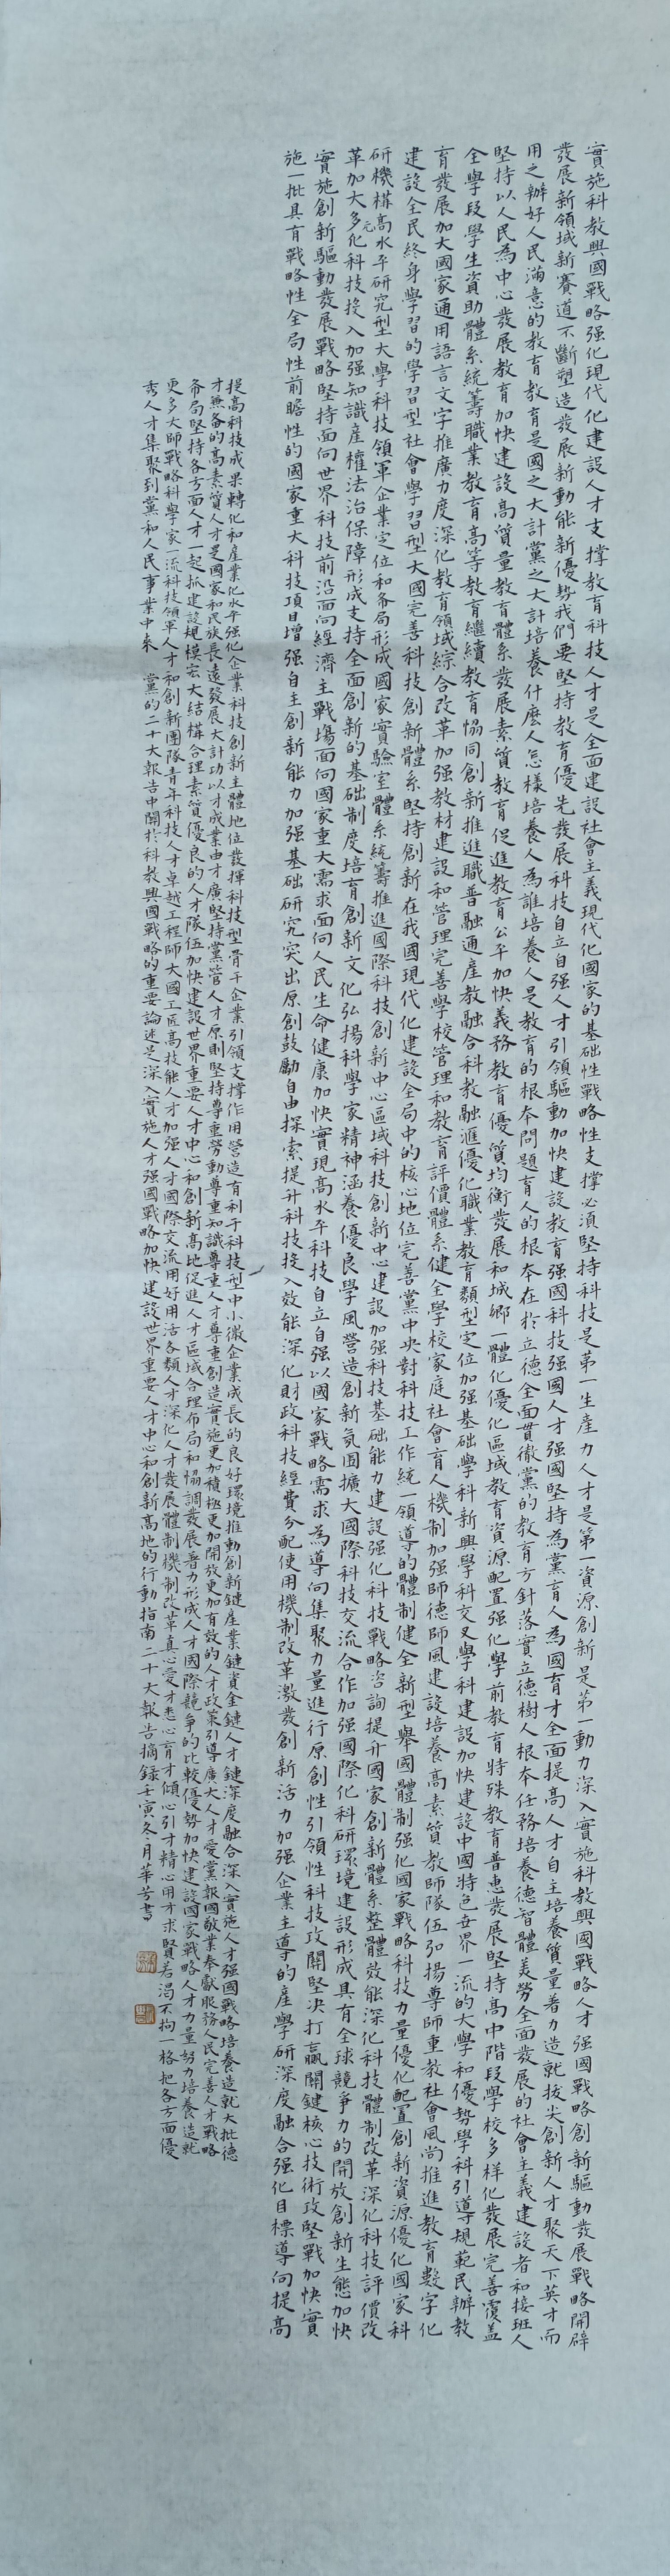 實施科教興國戰略强化現代化建設人才支撑教育科技人才是全面建設社會主義現代化國家的基礎性戰略性支撑必須堅持科技是第一生産力人才是第一資源創新是第一動力深入實施科教興國戰略人才强國戰略創新驅動發展戰略開辟
發展新領域新賽道不斷塑造發展新動能新優勢我們要堅持教育優先發展科技自立自强人才引領驅動加快建設教育强國科技强國人才强國堅持為黨育人為國育才全面提高人才自主培養質量着力造就拔尖創新人才聚天下英才而
用之辦好人民滿意的教育教育是國之大計黨之大計培養什麼人怎樣培養人為誰培養人是教育的根本問題育人的根本在於立德全面貫徹黨的教育方針落實立德樹人根本任務培養德智體美勞全面發展的社會主義建設者和接班人
堅持以人民為中心發展教育加快建設高質量教育體系發展素質教育促進教育公平加快義務教育優質均衡發展和城鄉一體化優化區域教育資源配置强化學前教育特殊教育普惠發展堅持高中階段學校多樣化發展完善覆蓋
全學段學生資助體系統籌職業教育高等教育繼續教育協同創新推進職普融通産教融合科教融滙優化職業教育類型定位加强基礎學科新興學科交叉學科建設加快建設中國特色世界一流的大學和優勢學科引導規範民辦教
育發展加大國家通用語言文字推廣力度深化教育領域綜合改革加强教材建設和管理完善學校管理和教育評價體系健全學校家庭社會育人機制加强師德師風建設培養高素質教師隊伍弘揚尊師重教社會風尚推進教育數字化
建設全民終身學習的學習型社會學習型大國完善科技創新體系堅持創新在我國現代化建設全局中的核心地位完善黨中央對科技工作統一領導的體制健全新型舉國體制强化國家戰略科技力量優化配置創新資源優化國家科
研機構高水平研究型大學科技領軍企業定位和布局形成國家實驗室體系統籌推進國際科技創新中心區域科技創新中心建設加强科技基礎能力建設强化科技戰略咨詢提升國家創新體系整體效能深化科技體制改革深化科技評價改
革加大多元化科技投入加强知識産權法治保障形成支持全面創新的基础制度培育創新文化弘揚科學家精神涵養優良學風營造創新氛圍擴大國際科技交流合作加强國際化科研環境建設形成具有全球競爭力的開放創新生態加快
實施創新驅動發展戰略堅持面向世界科技前沿面向經濟主戰場面向國家重大需求面向人民生命健康加快實現高水平科技自立自强以國家戰略需求為導向集聚力量進行原創性引領性科技攻關堅决打贏關鍵核心技術攻堅戰加快實
施一批具有戰略性全局性前瞻性的國家重大科技項目增强自主創新能力加强基礎研究突出原創鼓勵自由探索提升科技投入效能深化財政科技經費分配使用機制改革激發創新活力加强企業主導的産學研深度融合强化目標導向提高
提高科技成果轉化和産業化水平强化企業科技創新主體地位發揮科技型骨干企業引領支撑作用營造有利于科技型中小微企業成長的良好環境推動創新鏈産業鏈資金鏈人才鏈深度融合深入實施人才强國戰略培養造就大批德
才兼备的高素質人才是國家和民族長遠發展大計功以才成業由才廣堅持黨管人才原則堅持尊重勞動尊重知識尊重人才尊重創造實施更加積極更加開放更加有效的人才政策引導廣大人才愛黨報國敬業奉獻服務人民完善人才戰略
布局堅持各方面人才一起抓建設規模宏大結構合理素質優良的人才隊伍加快建設世界重要人才中心和創新高地促進人才區域合理布局和協調發展着力形成人才國際競爭的比較優勢加快建設國家戰略人才力量努力培養造就
更多大師戰略科學家一流科技領軍人才和創新團隊青年科技人才卓越工程師大國工匠高技能人才加强人才國際交流用好用活各類人才深化人才發展體制機制改革真心愛才悉心育才傾心引才精心用才求賢若渴不拘一格把各方面優
秀人才集聚到黨和人民事業中來 黨的二十大報告中關於科教興國戰略的重要論述是深入實施人才强國戰略加快建設世界重要人才中心和創新高地的行動指南二十大報告摘録壬寅冬月華芳書